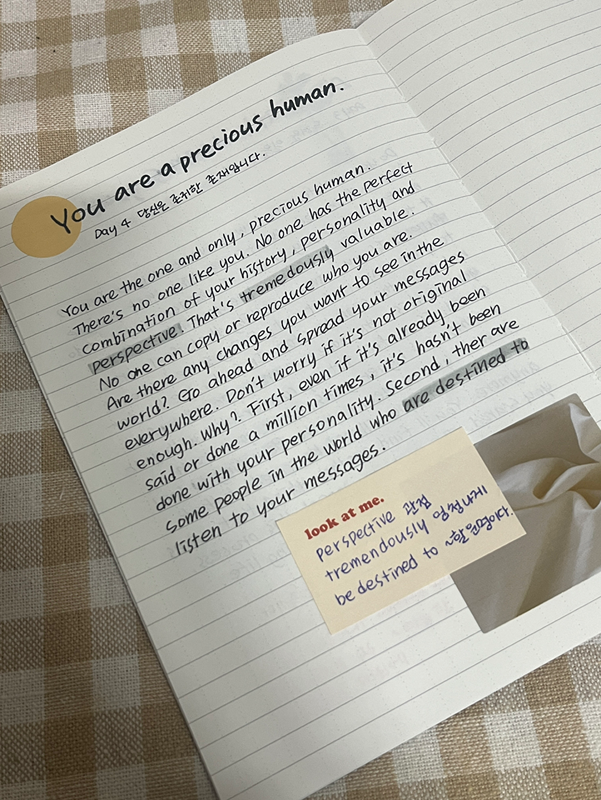 You are a precious human.
Day 4 당신은 존귀한 존재입니다.
You are the one and only, precious human.
There's no one like you. No one has the perfect
combination of your history, personality and
perspective. That's tremedously valuable.
No one can copy or reproduce who you are.
Are there any changes you want to see in the
world? Go ahead and spread your messages
everywhere. Don't worry if it's not original
enough. Why?. First, even if it's already been
said or done a million times, it's hasn't been
done with your personality. Second, ther are
some people in the world who are destined to
listen to your messages.
look at me.
perspective 관점
tremendously 엄청나게
be destined to ~할 운명이다.